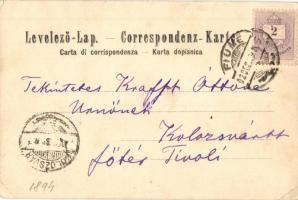 Levelező-Lap. — Correspondenz-Karte
Carta di corrispondenza — Karta dopisnica
FIUME
2
Tekintetes Krafft Ottóné
Urnőnek
Kolozsvártt
főtér Tivoli
KOLOZSVÁR
1894